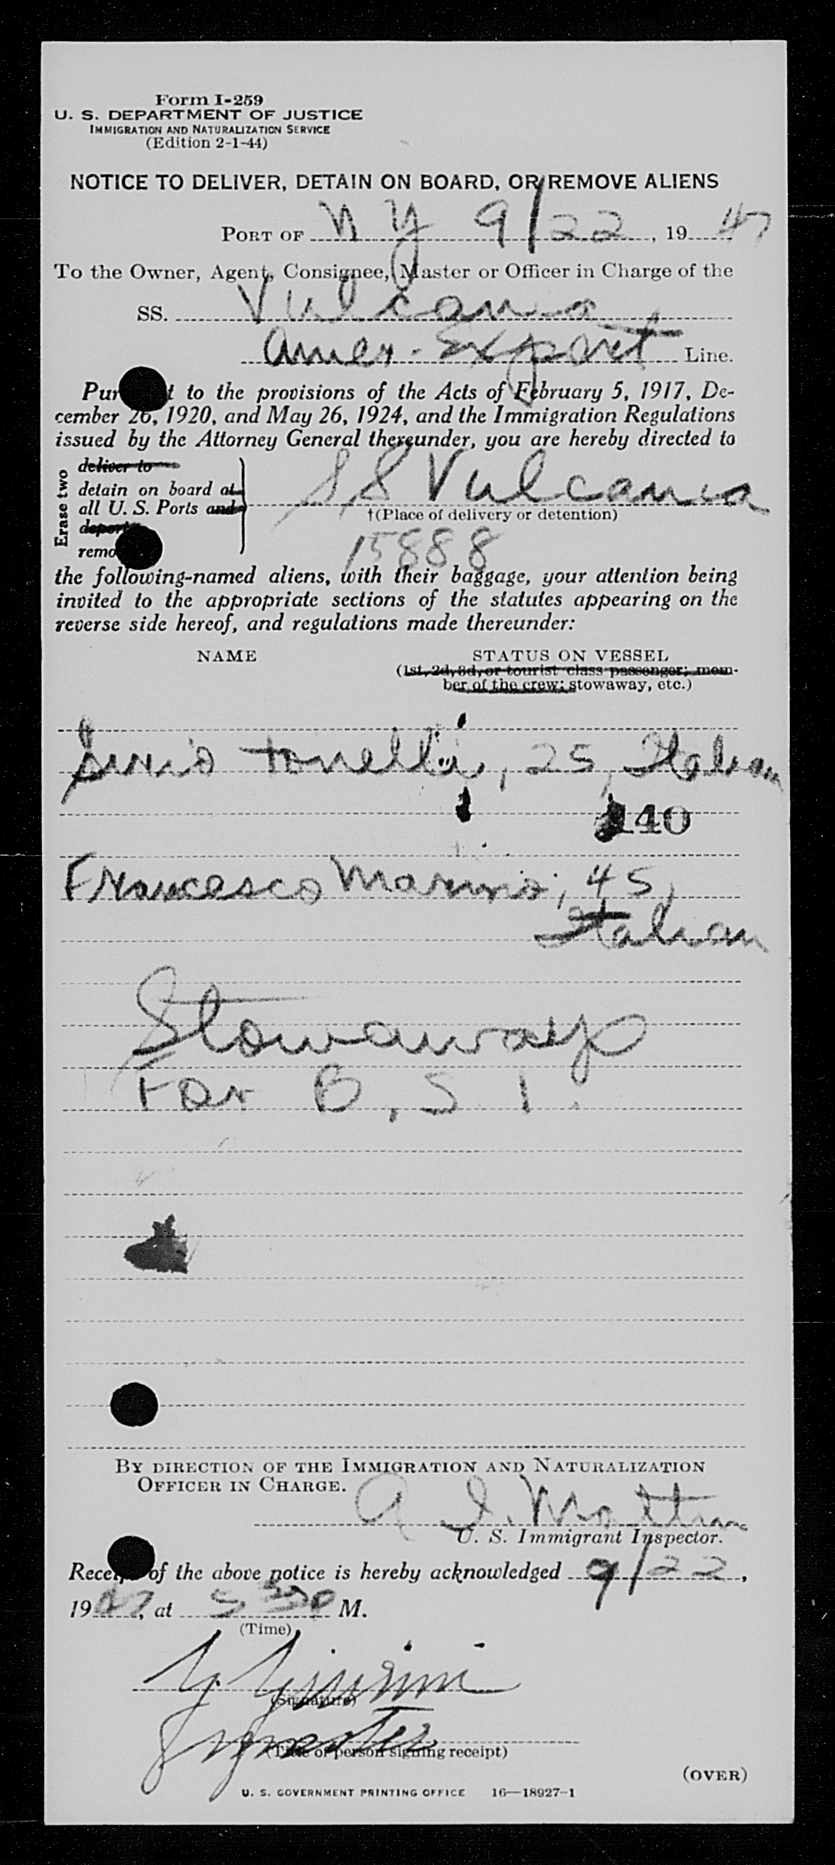 Form I-259
U. S. DEPARTMENT OF JUSTICE
IMMIGRATION AND NATURALIZATION SERVICE
(Edition 2-1-44)
NOTICE TO DELIVER, DETAIN ON BOARD, OR REMOVE ALIENS
PORT OF N Y 9/22, 19 47
To the Owner, Agent, Consignee, Master or Officer in Charge of the
SS. Vulcania
Amer. Export Line.
Pur t to the provisions of the Acts of February 5, 1917, De-
cember 26, 1920, and May 26, 1924, and the Immigration Regulations
issued by the Attorney General thereunder, you are hereby directed to
Erase two
deliver to
detain on board at
all U. S. Ports and
deport
remo
SS Vulcania
†(Place of delivery or detention)
15888
the following-named aliens, with their baggage, your attention being
invited to the appropriate sections of the statutes appearing on the
reverse side hereof, and regulations made thereunder:
NAME
STATUS ON VESSEL
(1st, 2d, 3d, or tourist class passenger; mem-
ber of the crew; stowaway, etc.)
tonelli, 25, Italian
140
Francesco Marino, 45,
Italian
Stowaways
For B.S.I.
BY DIRECTION OF THE IMMIGRATION AND NATURALIZATION
OFFICER IN CHARGE.
A. I.
U. S. Immigrant Inspector.
Receipt of the above notice is hereby acknowledged 9/22,
1947, at 5 30 P M.
(Time)
(Signature)
(Title of person signing receipt)
(OVER)
U. S. GOVERNMENT PRINTING OFFICE 16—18927-1